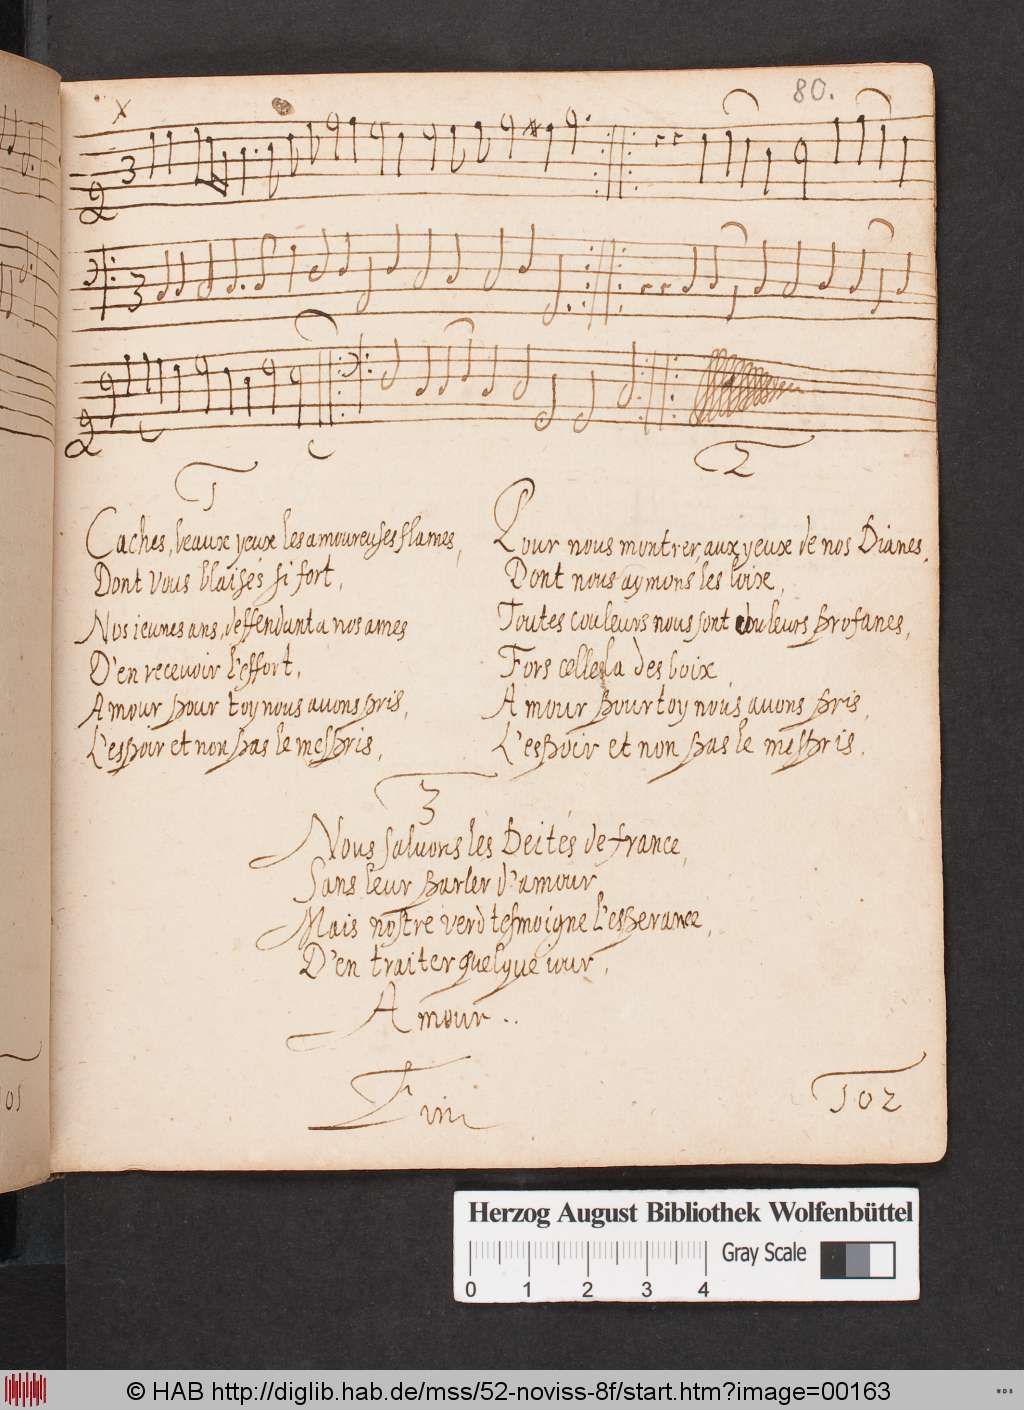 80.
X
3
3
1
Caches, beaux yeux les amoureuses flames,
Dont vous blaisés si fort,
Nos ieunes ans, deffendunt a nos ames
D'en recevoir l'effort,
Amour pour toy nous avons pris,
L'espoir et non pas le mespris,
2
Pour nous montrer, aux yeux de nos Dianes,
Dont nous aymons les loix,
Toutes couleurs nous sont couleurs profanes,
Fors celle la des boix,
Amour pour toy nous avons pris,
L'espoir et non pas le mespris.
3
Nous saluons les Deités de france,
Sans leur parler d'amour
Mais nostre verd tesmoigne l'esperance,
D'en traiter quelque iour,
Amour..
Fin
101
102
Herzog August Bibliothek Wolfenbüttel
Gray Scale
0 1 2 3 4
© HAB http://diglib.hab.de/mss/52-noviss-8f/start.htm?image=00163